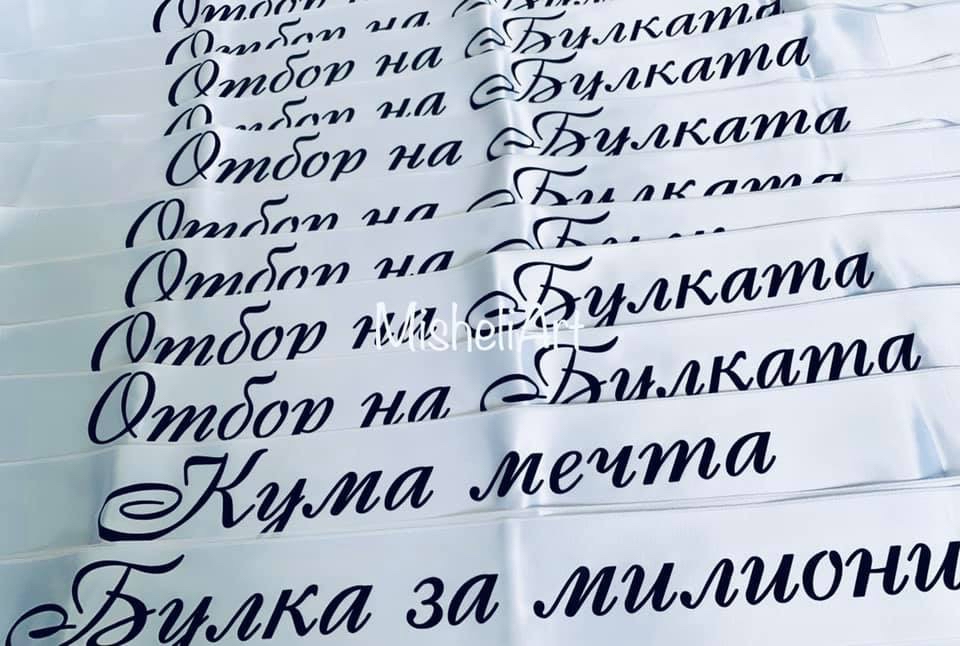 Отбор на
Отбор на Булката
Отбор на Булката
Отбор на
Отбор на Булката
Отбор на Булката
Отбор на
Отбор на Булката
MisheliArt
Отбор на Булката
Кума мечта
Булка за милиони